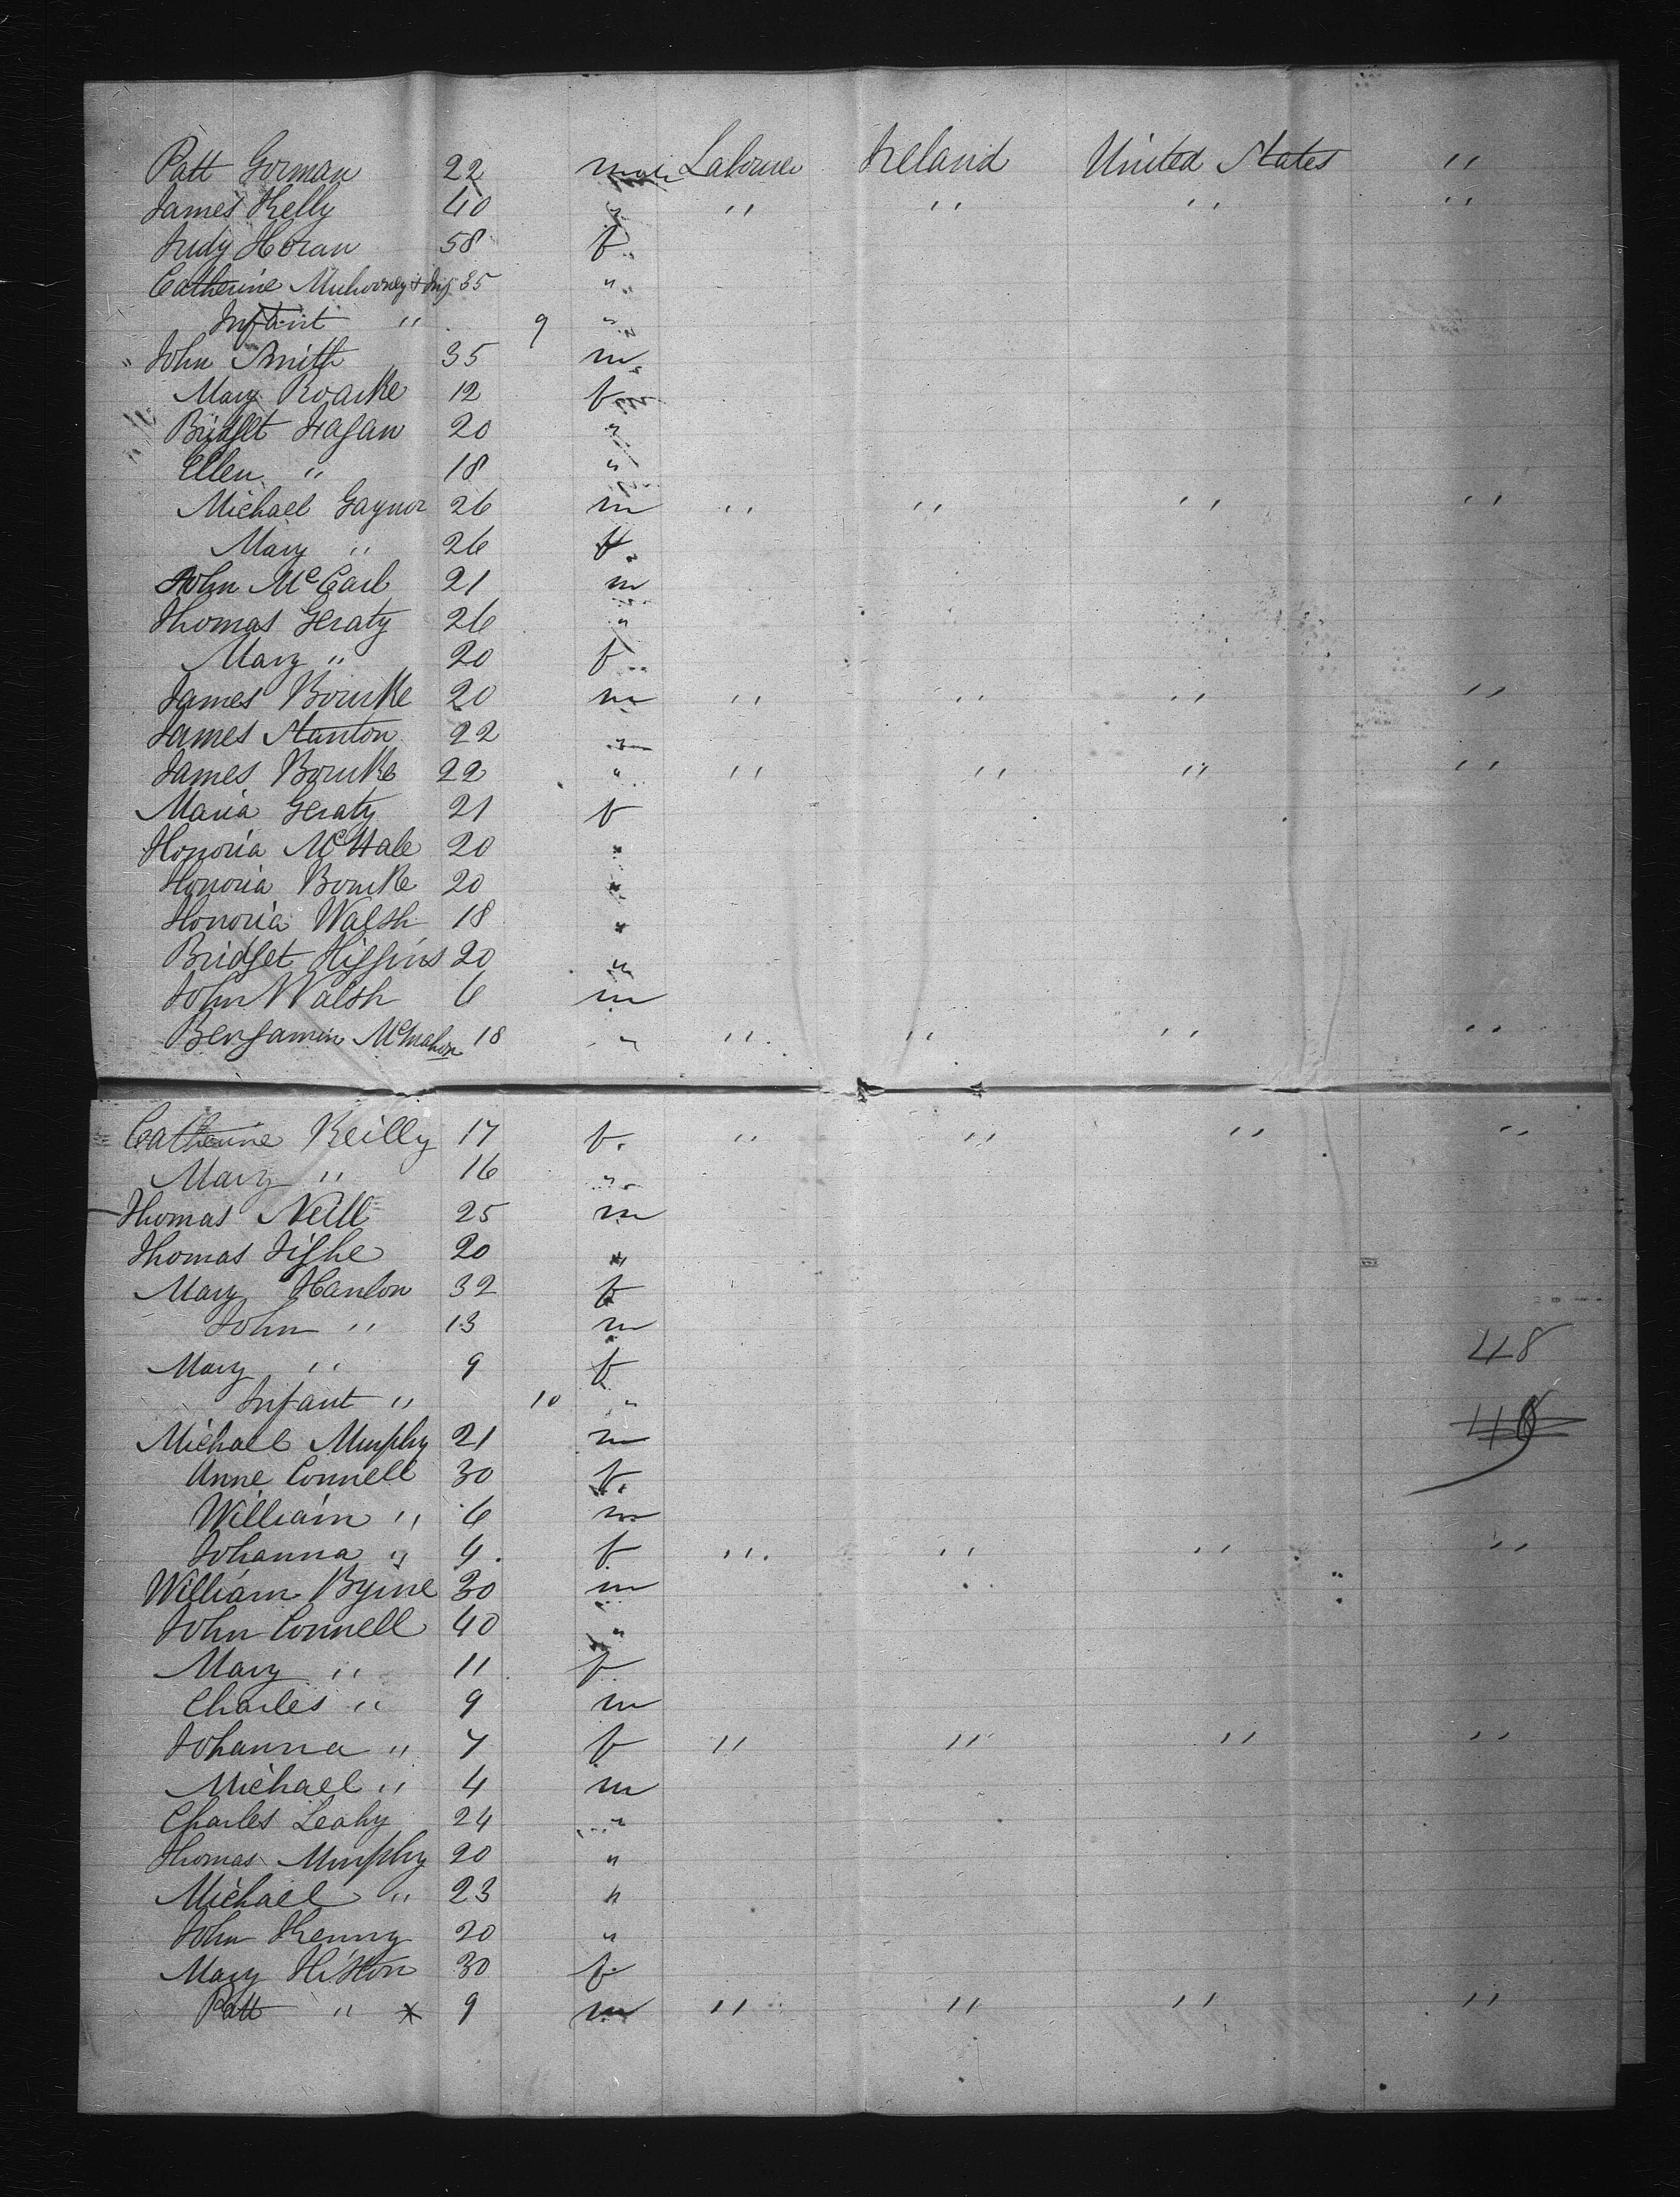 Patt Gorman 22 male Laborer Ireland United States "
James Kelly 40 " " " " "
Judy Horan 58 f
Catherine 35 "
Infant " 9 "
John Smith 35 m
Mary Roarke 12 f
Bridget Fagan 20 "
Ellen " 18 "
Michael Gaynor 26 m " " " "
Mary " 26 f
John McCarl 21 m
Thomas Geraty 26 "
Mary " 20 f
James Bourke 20 m " " " "
James Stanton 22 "
James Bourke 22 " " " " "
Maria Geraty 21 f
Honoria McHale 20 "
Honoria Bourke 20 "
Honoria Walsh 18 "
Bridget Higgins 20 "
John Walsh 6 m
Benjamin McMahon 18 " " " " "
Catherine Reilly 17 f. " " " "
Mary " 16 "
Thomas Neill 25 m
Thomas Tighe 20 "
Mary Hanlon 32 f
John " 13 m
Mary " 9 f 48
Infant " 10 "
Michael Murphy 21 m 48
Anne Connell 30 f.
William " 6 m
Johanna " 4 f " " " "
William Byrne 30 m
John Connell 40 "
Mary " 11 f
Charles " 9 m
Johanna " 7 f " " " "
Michael " 4 m
Charles Leahy 24 "
Thomas Murphy 20 "
Michael " 23 "
John Kenny 20 "
Mary 30 f
Patt " x 9 m " " " "